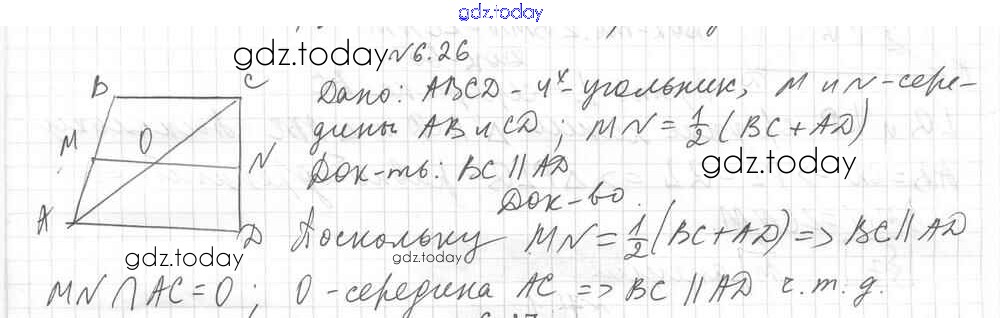 gdz.today
gdz.today №6.26
B C Дано: ABCD - 4х-угольник, M и N - сере-
M O N дины AB и CD; MN = 1/2 (BC + AD)
gdz.today
Док-ть: BC || AD
Док-во.
A D Поскольку MN = 1/2 (BC + AD) => BC || AD
gdz.today gdz.today
MN ∩ AC = O; O - середина AC => BC || AD ч.т.д.